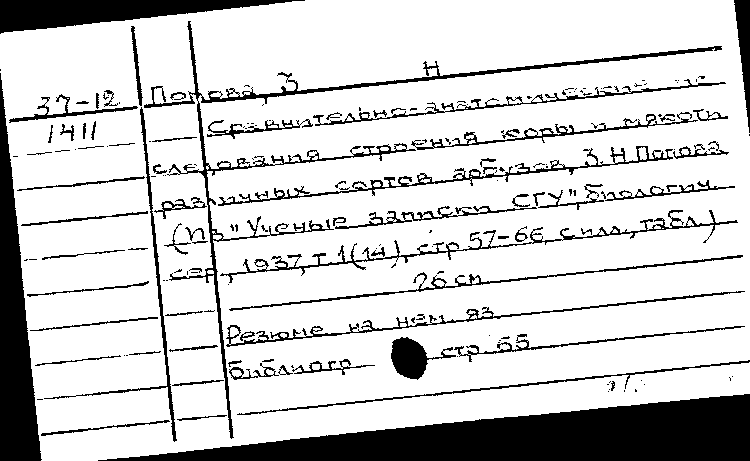 37-12 Попова, З Н
1411 Сравнительно-анатомические ис-
следования строения коры и мякоти
различных сортов арбузов, З. Н Попова
(Из "Ученые записки СГУ", биологич.
сер., 1937, т. 1(14), стр 57-66, с илл., табл.)
26 см
Резюме на нем. яз
библиогр стр. 65